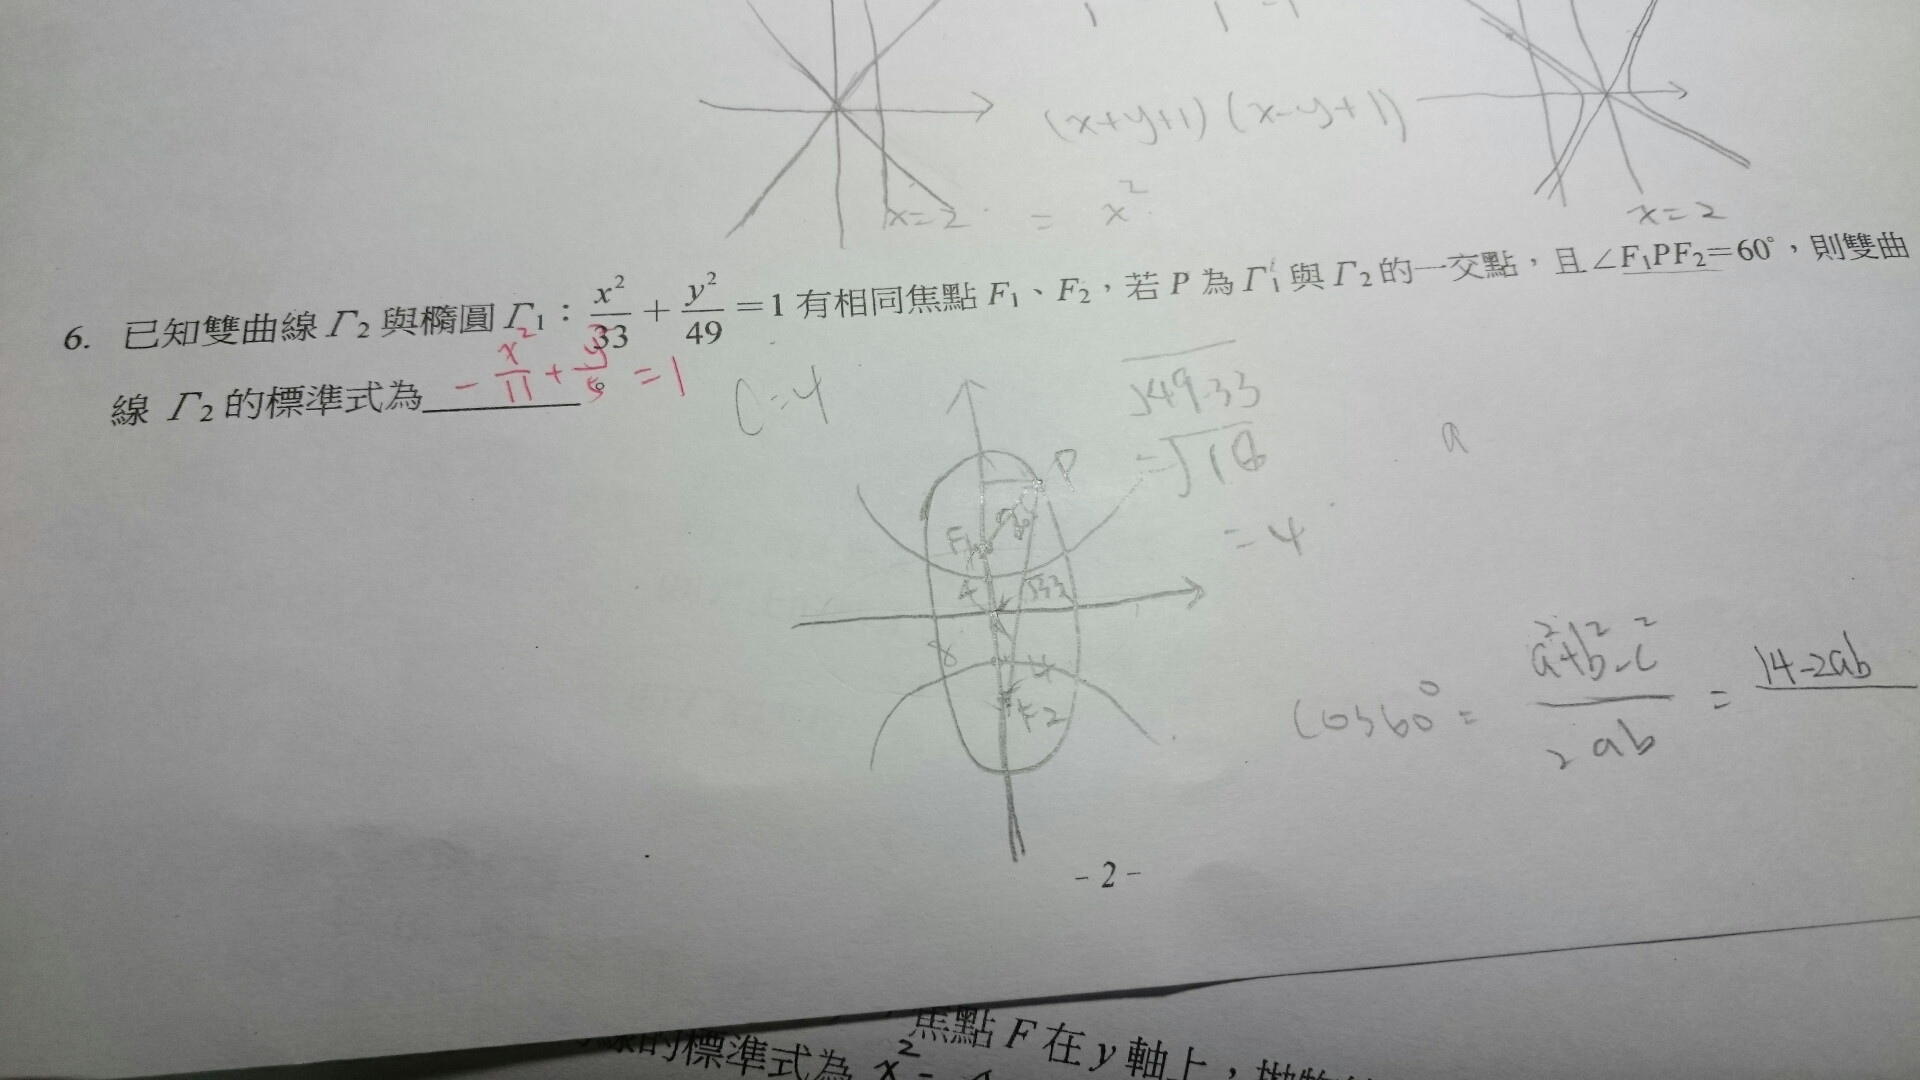 (x+y+1)(x-y+1)
x=2 = x²
x=2
6. 已知雙曲線 Γ₂ 與橢圓 Γ₁：x²/33 + y²/49 = 1 有相同焦點 F₁、F₂，若 P 為 Γ₁ 與 Γ₂ 的一交點，且∠F₁PF₂=60°，則雙曲
線 Γ₂ 的標準式為________。
-x²/11 + y²/5 = 1
C=4
√49-33
=√16
=4
a
P
F1
4
√33
8
4
F2
cos60° = a²+b²-c²/2ab = 14-2ab
- 2 -
焦點 F 在 y 軸上，拋物
線的標準式為 x² =